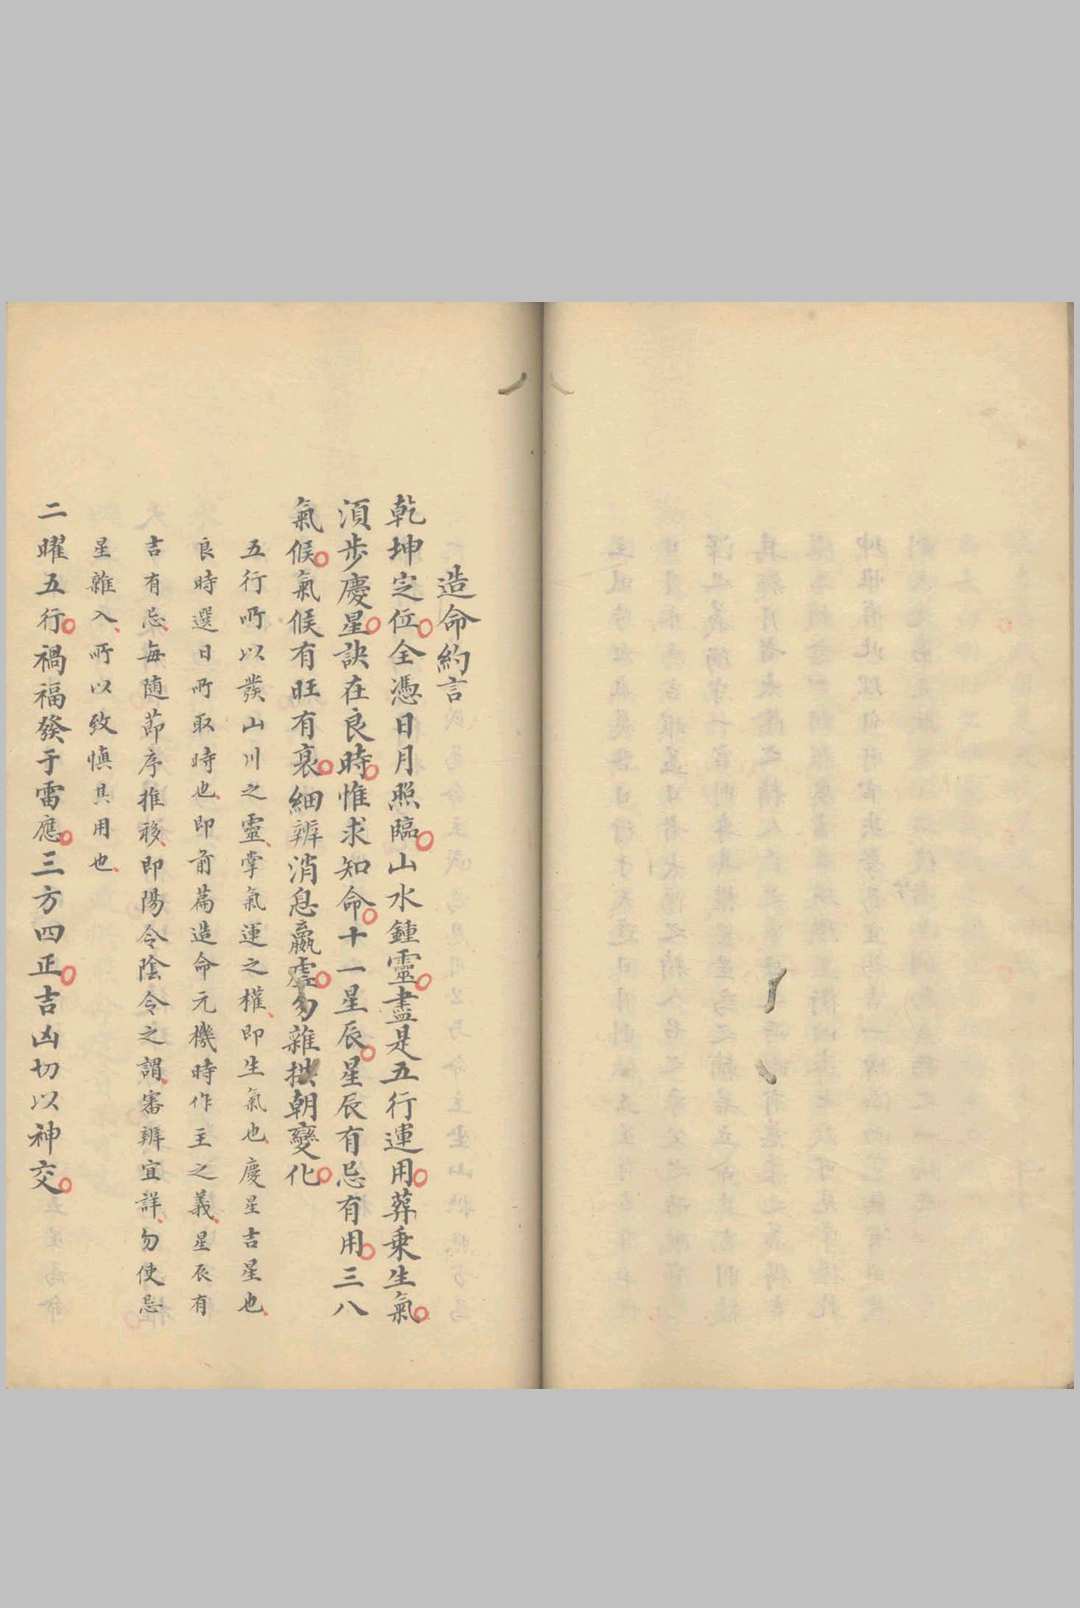 造命約言
乾坤定位全憑日月照臨山水鍾靈盡是五行運用葬乗生氣
湏步慶星訣在良時惟求知命十一星辰星辰有忌有用三八
氣候氣候有旺有衰細辨消息嬴虛勿雜拱朝變化
五行所以發山川之靈掌氣運之權即生氣也慶星吉星也
良時選日所取時也即前篇造命元機時作主之義星辰有
吉有忌每随莭序推移即陽令陰令之謂審辨宜詳勿使忌
星雜入所以致慎其用也
二曜五行禍福發于雷應三方四正吉凶切以神交